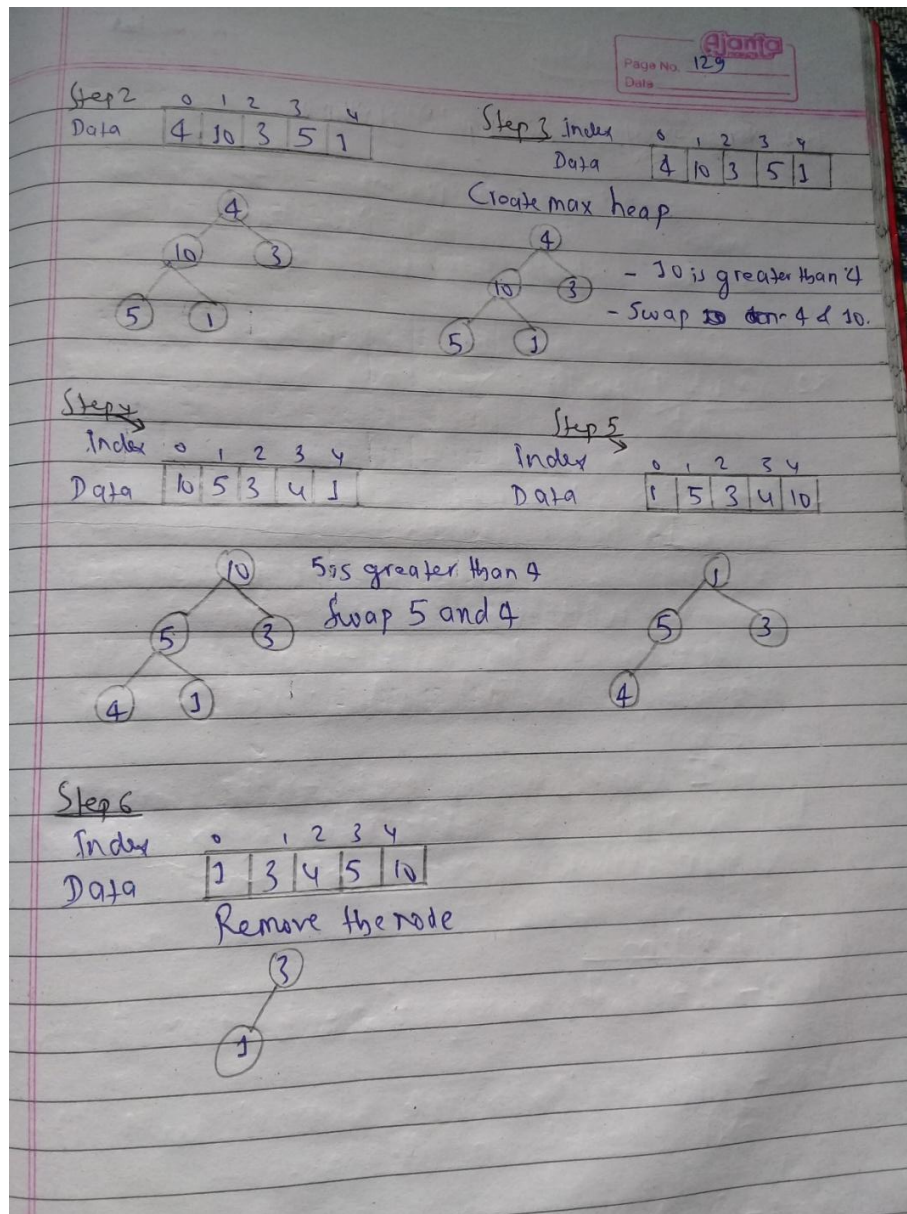 Ajanta
Page No. 129
Date
Step 2 0 1 2 3 4
Data 4 10 3 5 1
4
10 3
5 1
Step 3 Index 0 1 2 3 4
Data 4 10 3 5 1
Create max heap
4
10 3
5 1
- 10 is greater than 4
- Swap 4 & 10.
Step 4
Index 0 1 2 3 4
Data 10 5 3 4 1
10
5 3
4 1
5 is greater than 4
Swap 5 and 4
Step 5
Index 0 1 2 3 4
Data 1 5 3 4 10
1
5 3
4
Step 6
Index 0 1 2 3 4
Data 1 3 4 5 10
Remove the node
3
1